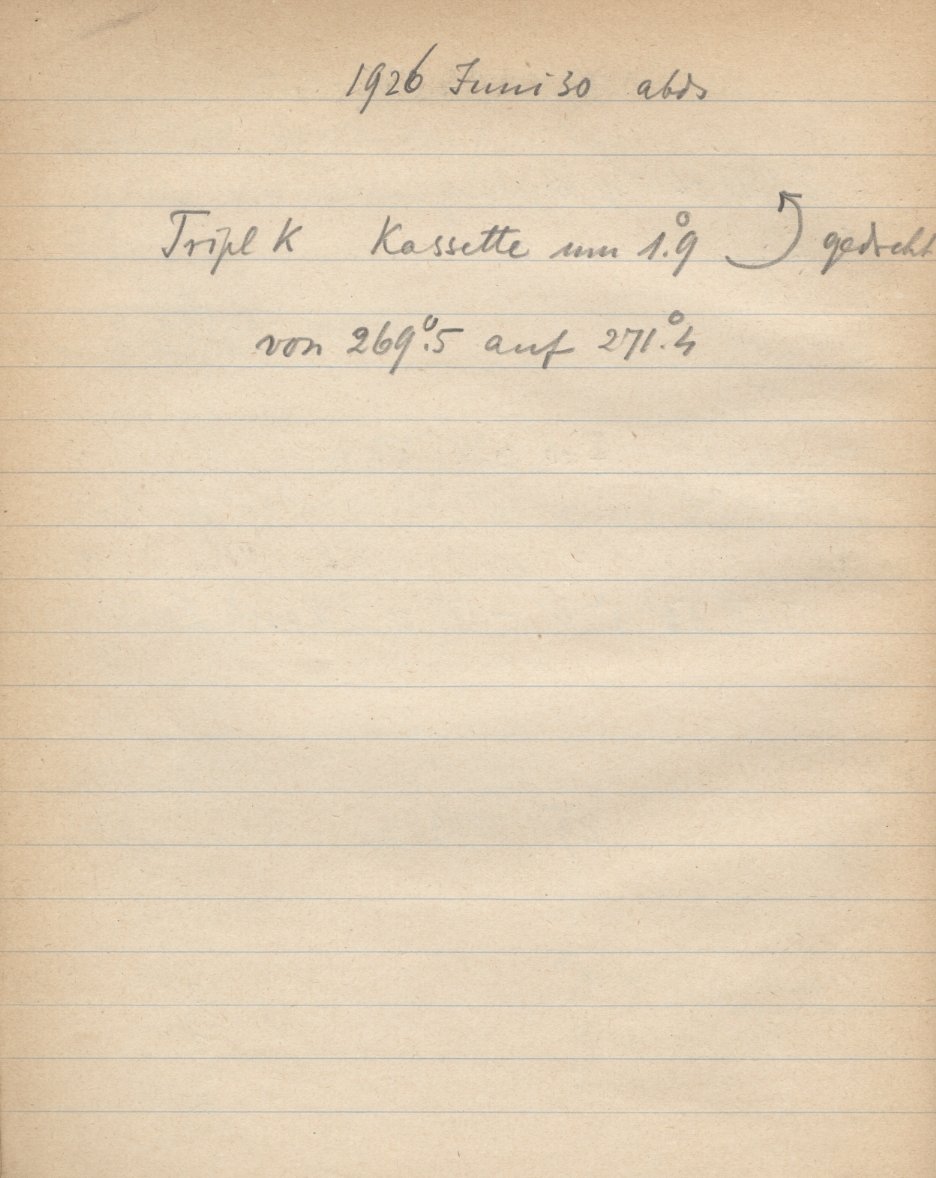 1926 Juni 30 abds
Tripl K Kassette um 1°.9 ⤴ gedreht
von 269°.5 auf 271°.4